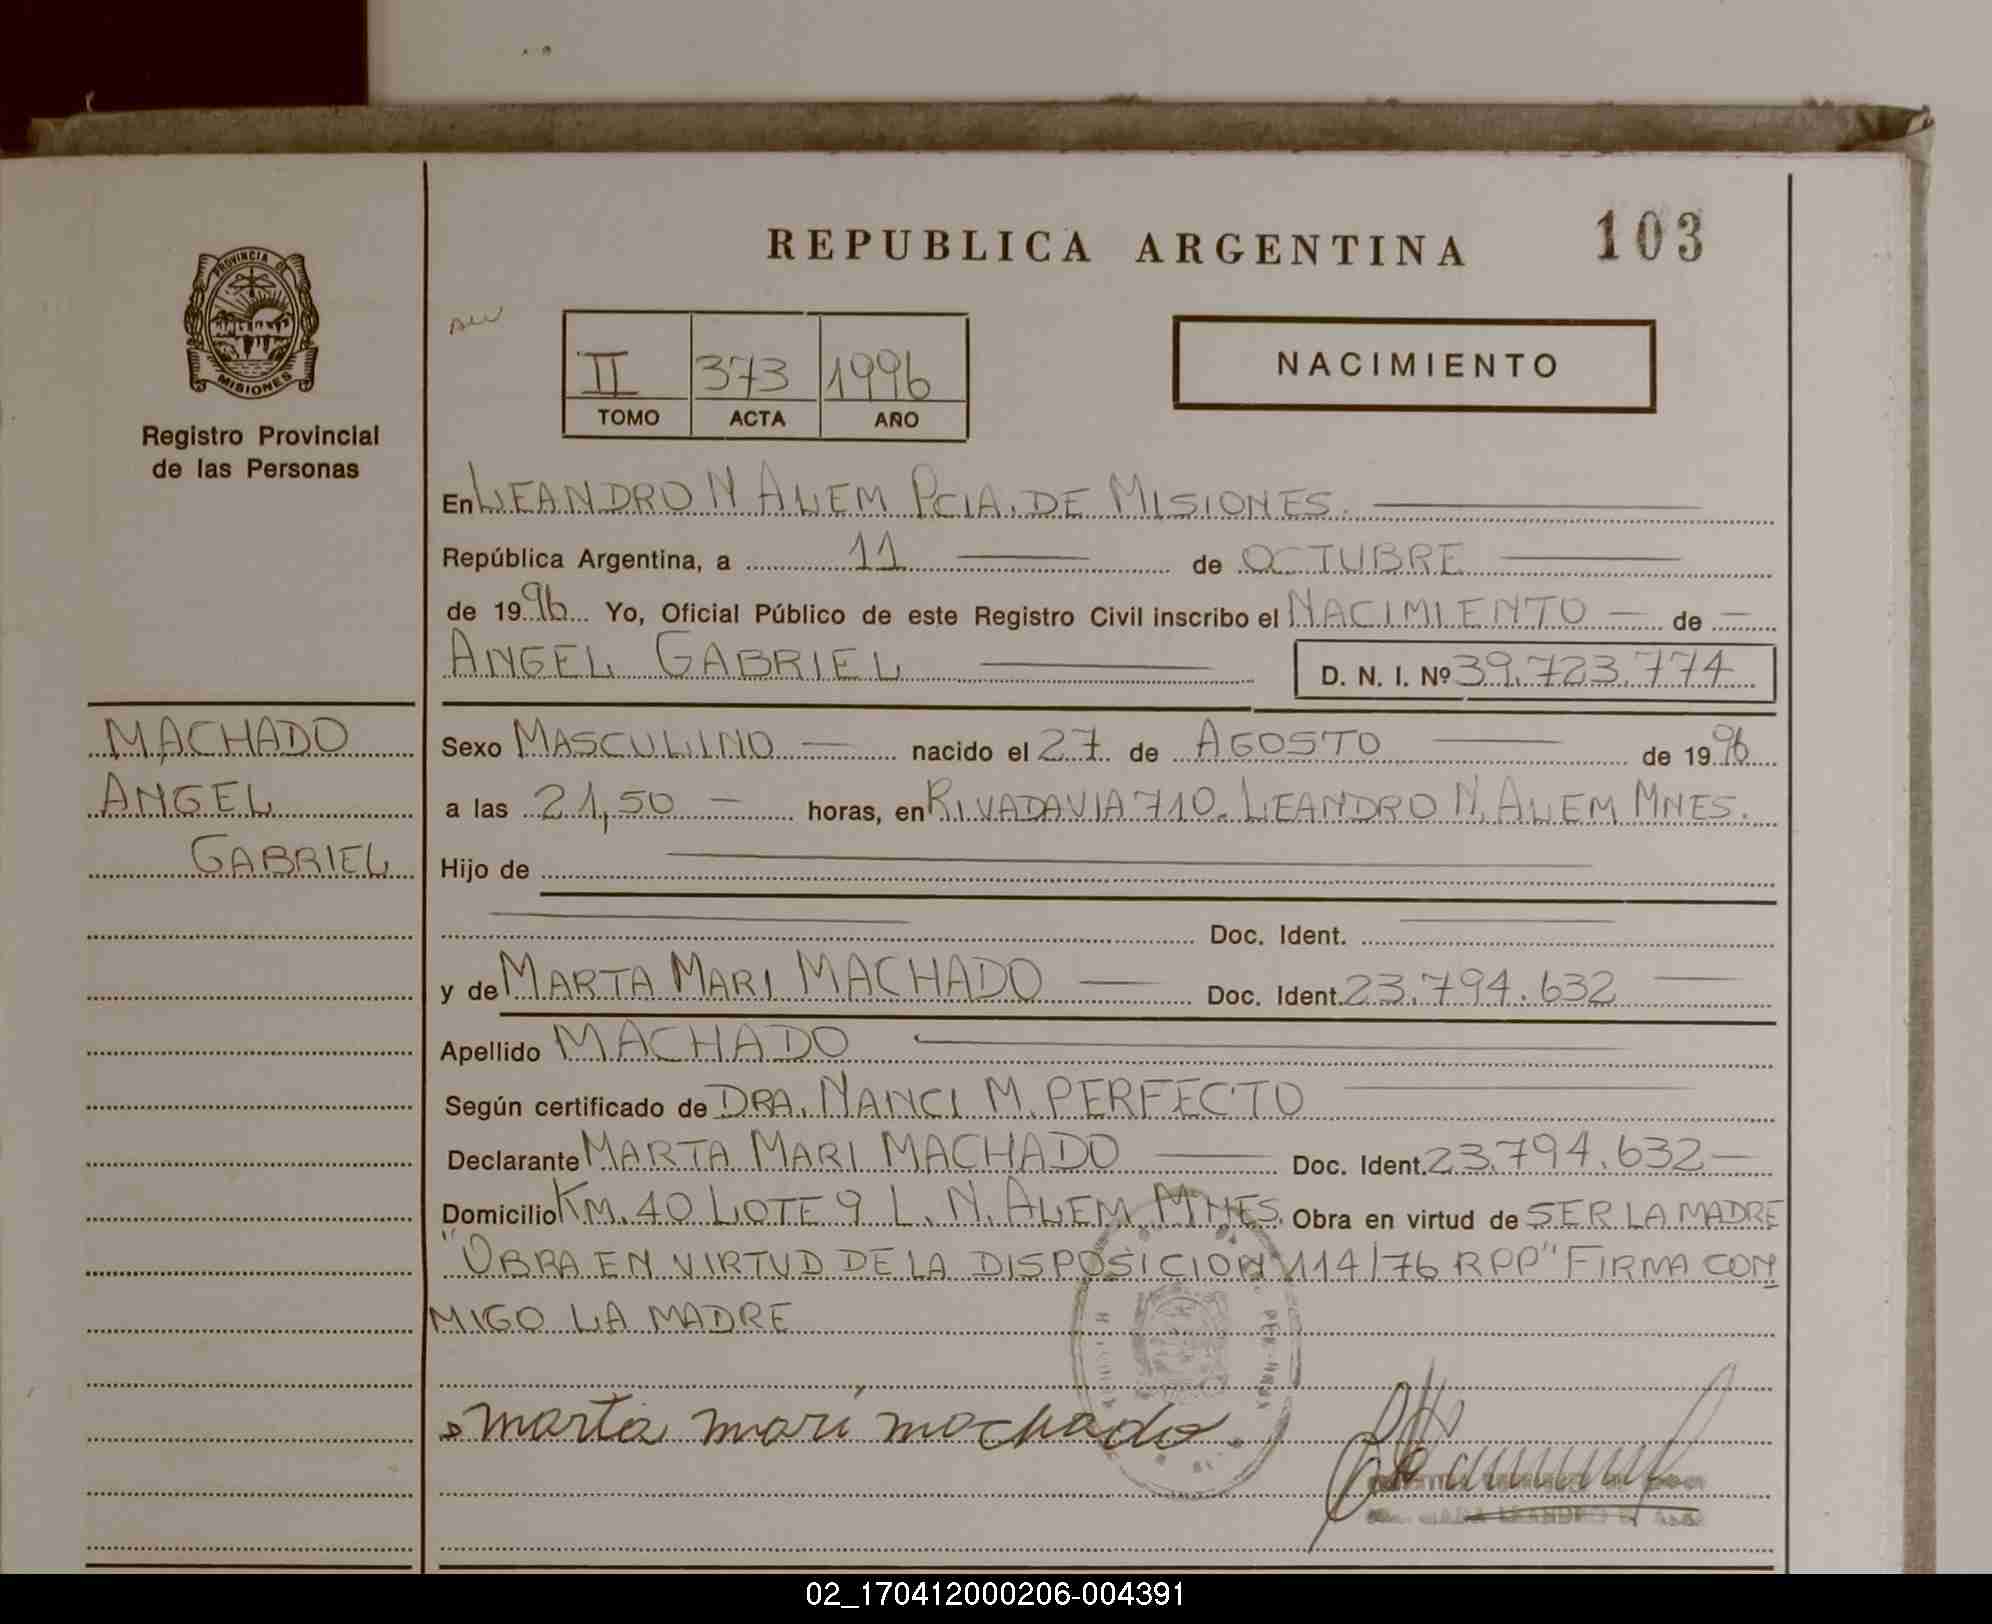 REPUBLICA ARGENTINA 103
PROVINCIA DE
MISIONES
Registro Provincial
de las Personas
II 373 1996
TOMO ACTA AÑO
NACIMIENTO
En LEANDRO N ALEM PCIA. DE MISIONES.
República Argentina, a 11 de OCTUBRE
de 1996 Yo, Oficial Público de este Registro Civil inscribo el NACIMIENTO de
ANGEL GABRIEL D. N. I. Nº 39.723.774
MACHADO
ANGEL
GABRIEL
Sexo MASCULINO nacido el 27 de AGOSTO de 1996
a las 21,50 horas, en RIVADAVIA 710. LEANDRO N. ALEM MNES.
Hijo de
Doc. Ident.
y de MARTA MARI MACHADO Doc. Ident. 23.794.632
Apellido MACHADO
Según certificado de DRA. NANCI M. PERFECTO
Declarante MARTA MARI MACHADO Doc. Ident. 23.794.632
Domicilio KM. 40 LOTE 9 L. N. ALEM MNES. Obra en virtud de SER LA MADRE
"OBRA EN VIRTUD DE LA DISPOSICION 114/76 RPP" FIRMA CON
MIGO LA MADRE
marta mari machado
02_170412000206-004391